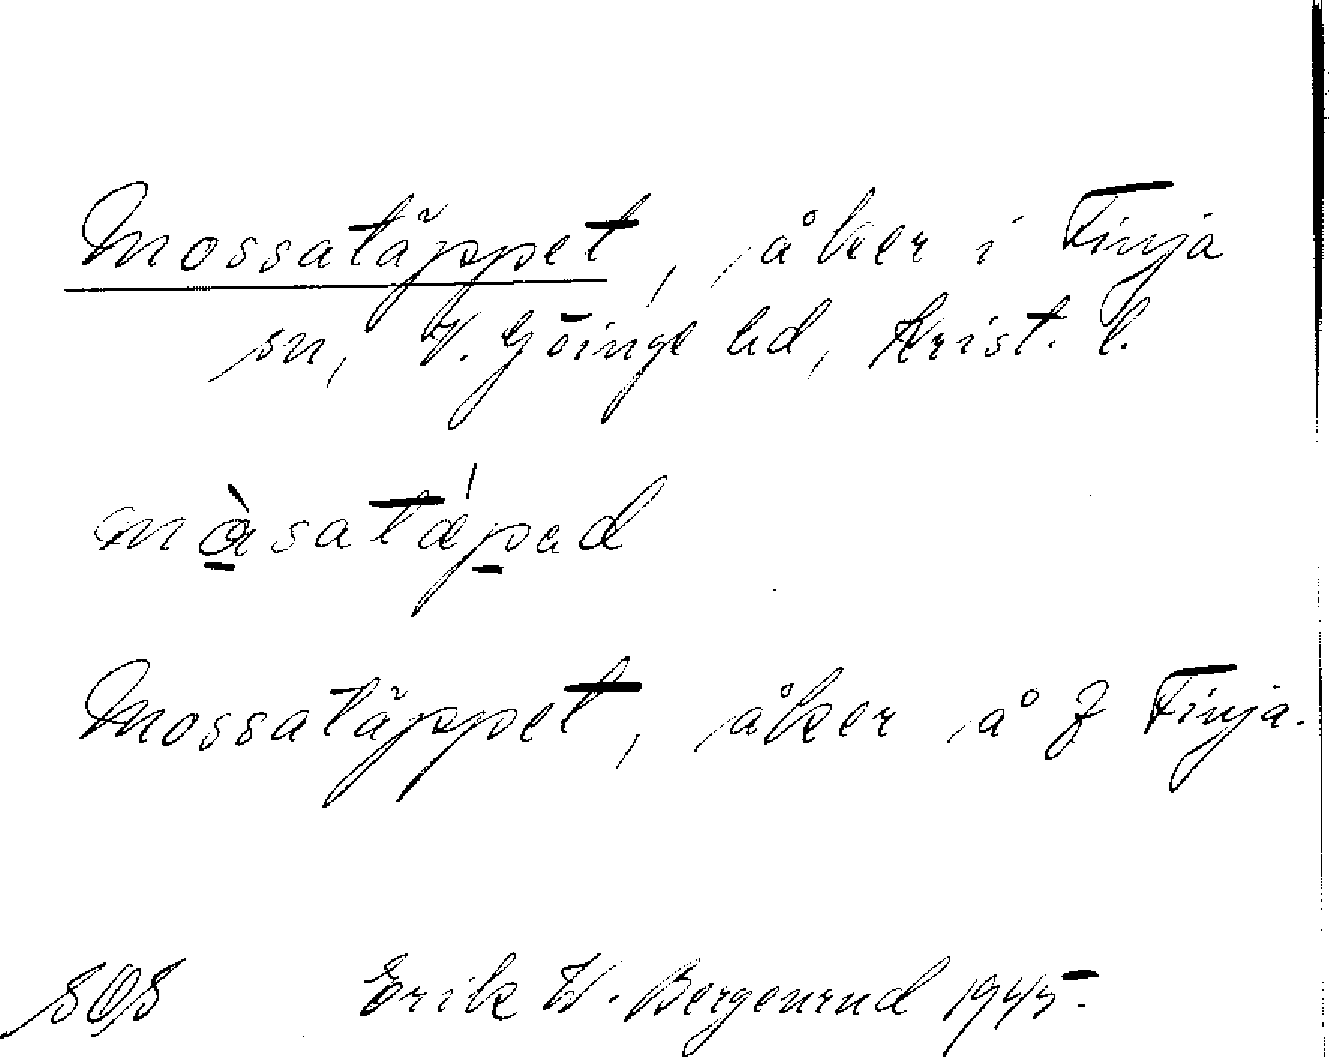 Mossatäppet, åker i Finja
sn, V. Göinge hd, Krist. l.
måsatäpad
Mossatäppet, åker å Finja.
SOS Erik W. Bergenrud 1945.